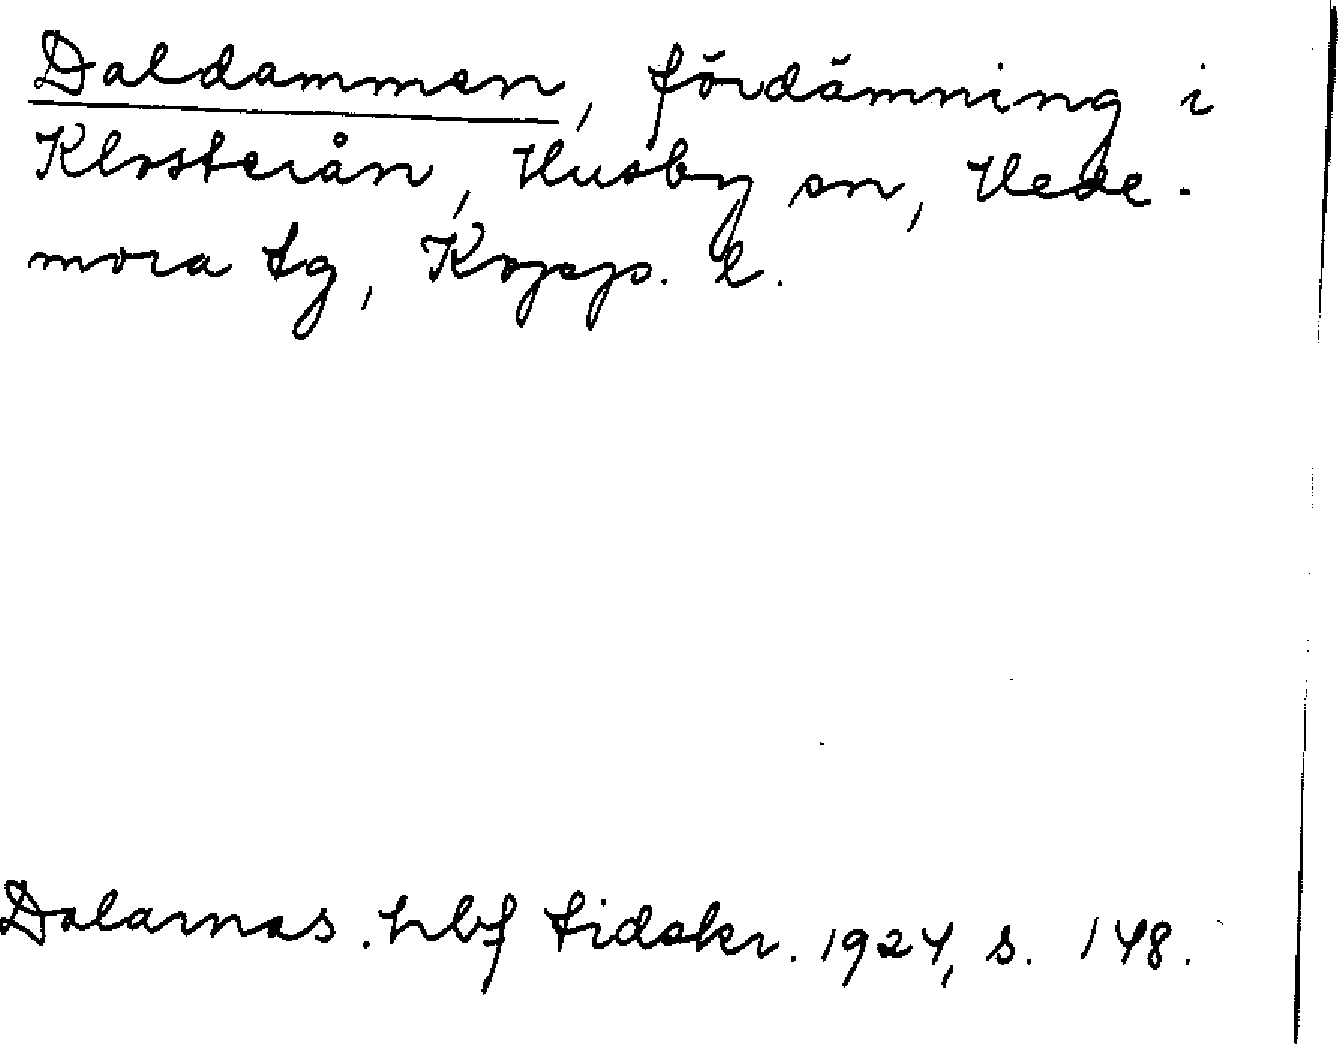 Daldammen, fördämning i
Klosterån, Husby sn, Hede-
mora tg, Kopp. l.
Dalarnas hbf tidskr. 1924, s. 148.